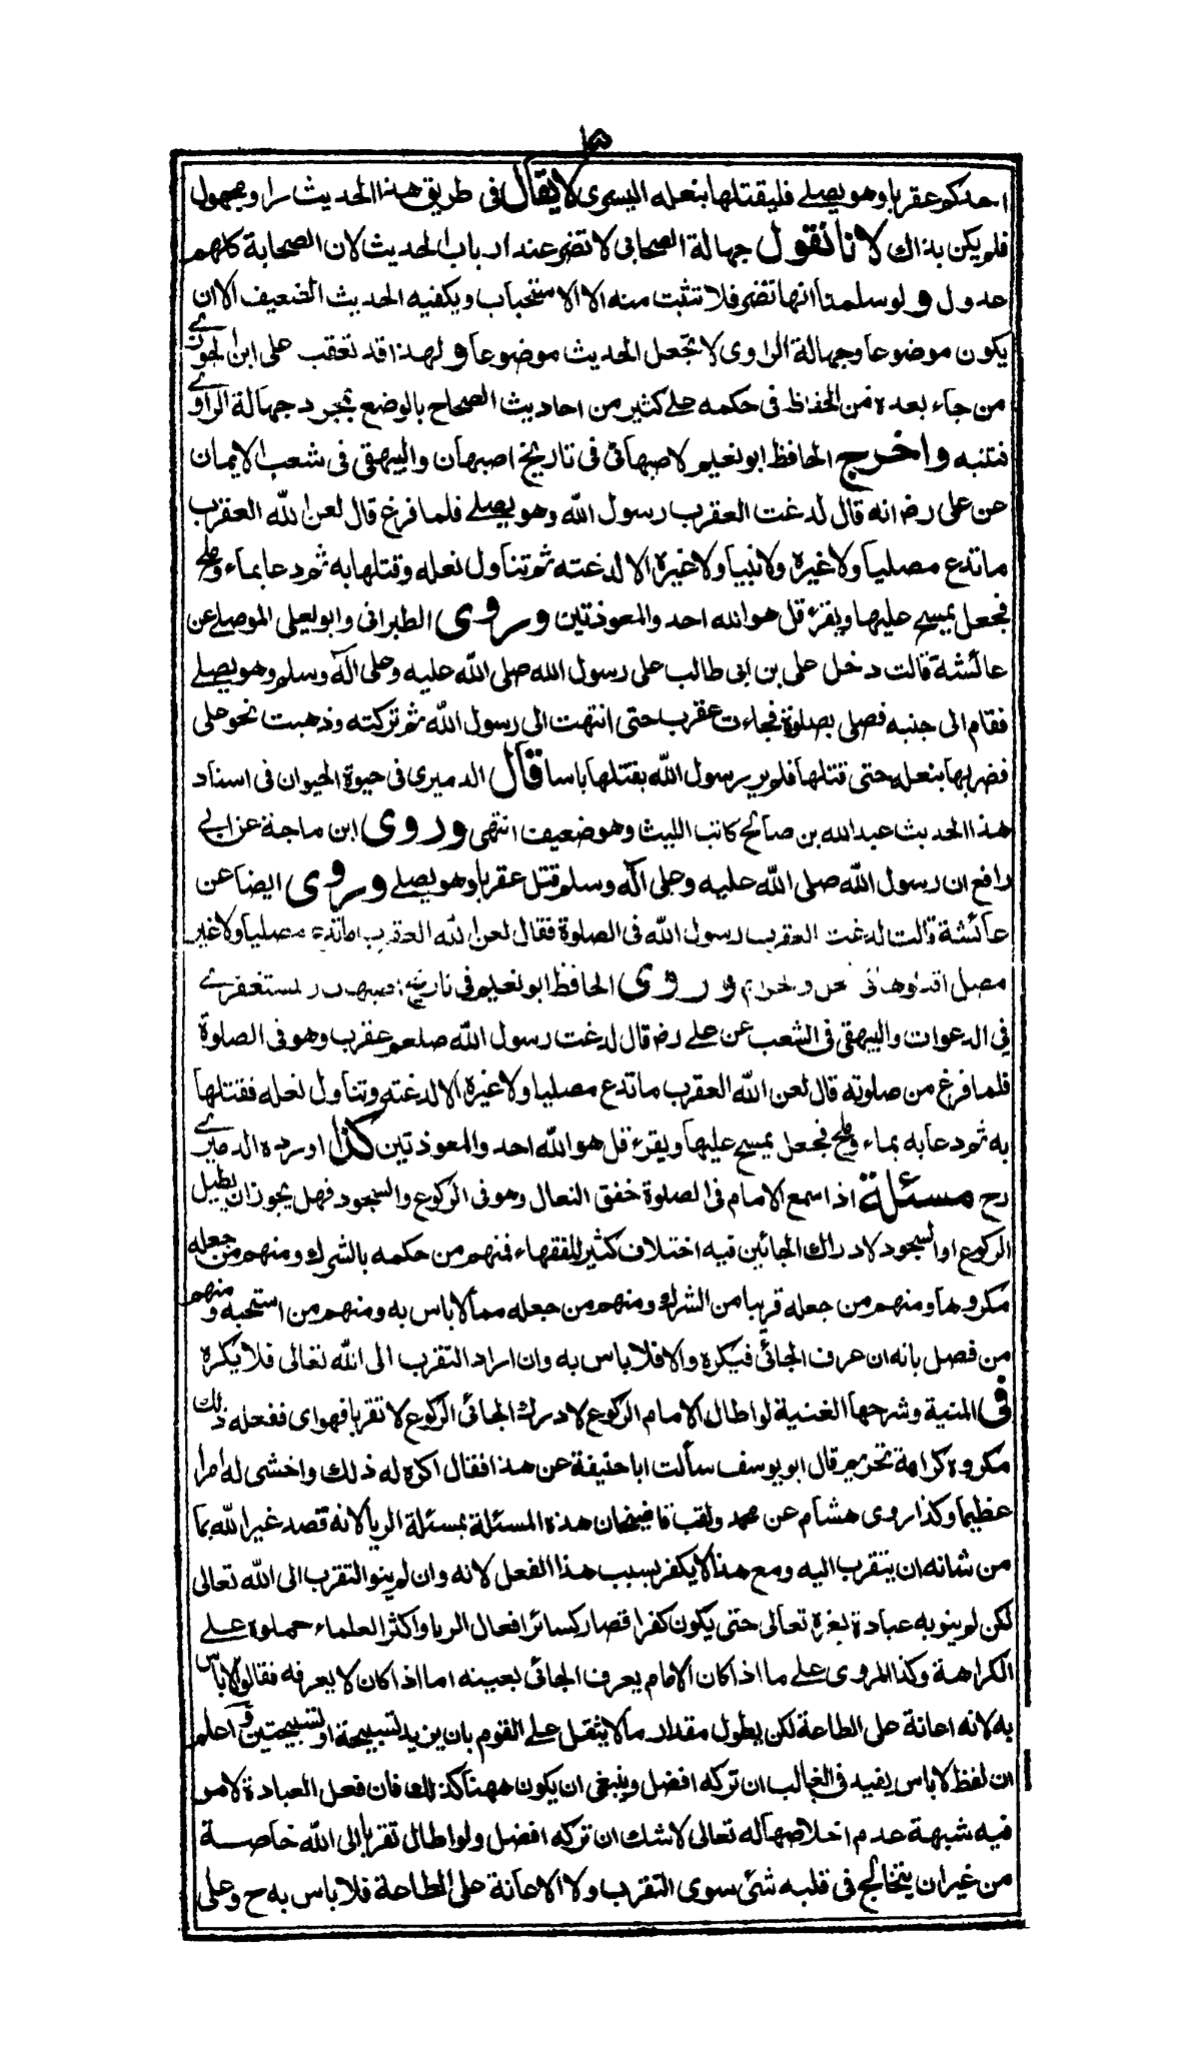 ١٥
احدكم عقربا وهو يصلے فليقتلها بنعله اليسرى لا يقال فى طريق هذا الحديث راو مجهول
فلم يكن بذاك لانا نقول جهالة الصحابى لا تضر عند ارباب الحديث لان الصحابة كلهم
عدول ولو سلمنا انها تضر فلا تثبت منه الا الاستحباب ويكفيه الحديث الضعيف الا ان
يكون موضوعا وجهالة الراوى لا تجعل الحديث موضوعا ولهذا قد تعقب على ابن الجوزے
من جاء بعده من الحفاظ فى حكمه علے كثير من احاديث الصحاح بالوضع بمجرد جهالة الراوے
فتنبه واخرج الحافظ ابو نعيم الاصبهانى فى تاريخ اصبهان والبيهقى فى شعب الايمان
عن على رض انه قال لدغت العقرب رسول الله وهو يصلے فلما فرغ قال لعن الله العقرب
ما تدع مصليا ولا غيره ولا نبيا ولا غيره الا لدغته ثم تناول نعله وقتلها به ثم دعا بماء وملح
فجعل يمسح عليها ويقرء قل هو الله احد والمعوذتين وروى الطبرانى وابو يعلى الموصلے عن
عائشة قالت دخل على بن ابى طالب على رسول الله صلى الله عليه وعلى آله وسلم وهو يصلے
فقام الى جنبه فصلى بصلوة فجاءت عقرب حتى انتهت الى رسول الله ثم تركته وذهبت نحو على
فضربها بنعله حتى قتلها فلم ير رسول الله بقتلها باسا قال الدميرى فى حيوة الحيوان فى اسناد
هذا الحديث عبد الله بن صالح كاتب الليث وهو ضعيف انتهى وروى ابن ماجة عن ابى
رافع ان رسول الله صلى الله عليه وعلى آله وسلم قتل عقربا وهو يصلے وروى ايضا عن
عائشة قالت لدغت العقرب رسول الله فى الصلوة فقال لعن الله العقرب ما تدع مصليا ولا غير
مصل اقتلوها فى حل وحرم وروى الحافظ ابو نعيم فى تاريخ اصبهان والمستغفرے
فى الدعوات والبيهقى فى الشعب عن علے رض قال لدغت رسول الله صلعم عقرب وهو فى الصلوة
فلما فرغ من صلوته قال لعن الله العقرب ما تدع مصليا ولا غيره الا لدغته وتناول نعله فقتلها
به ثم دعا به بماء وملح فجعل يمسح عليها ويقرء قل هو الله احد والمعوذتين كذا اورده الدميرے
رح مسئلة اذا سمع الامام فى الصلوة خفق النعال وهو فى الركوع والسجود فهل يجوز ان يطيل
الركوع او السجود لادراك الجائين فيه اختلاف كثير للفقهاء فمنهم من حكمه بالشرك ومنهم من جعله
مكروها ومنهم من جعله قريبا من الشرك ومنهم من جعله مما لا باس به ومنهم من استحبه ومنهم
من فصل بانه ان عرف الجائى فيكره والا فلا باس به وان اراد التقرب الى الله تعالى فلا يكره
فى المنية وشرحها الغنية لو اطال الامام الركوع لادراك الجائى الركوع لا تقربا فهو اى ففعله ذلك
مكروه كراهة تحريم قال ابو يوسف سألت ابا حنيفة عن هذا فقال اكره له ذلك واخشى له امرا
عظيما وكذا روى هشام عن محمد ولقب قاضيخان هذه المسئلة بمسئلة الريا لانه قصد غير الله بما
من شانه ان يتقرب اليه ومع هذا لا يكفر بسبب هذا الفعل لانه وان لم ينو التقرب الى الله تعالى
لكن لم ينو به عبادة لغيره تعالى حتى يكون كفرا فصار كسائر افعال الريا واكثر العلماء حملوه علے
الكراهة وكذا المروى علے ما اذا كان الامام يعرف الجائى بعينه اما اذا كان لا يعرفه فقالوا لا باس
به لانه اعانة على الطاعة لكن يطول مقدار ما لا يثقل علے القوم بان يزيد تسبيحة او تسبيحتين واعلم
ان لفظ لا باس يفيد فى الغالب ان تركه افضل وينبغى ان يكون ههنا كذلك فان فعل العبادة لامر
فيه شبهة عدم اخلاصها له تعالى لا شك ان تركه افضل ولو اطال تقربا الى الله خاصة
من غير ان يتخالج فى قلبه شئ سوى التقرب ولا الاعانة على الطاعة فلا باس به ح وعلى